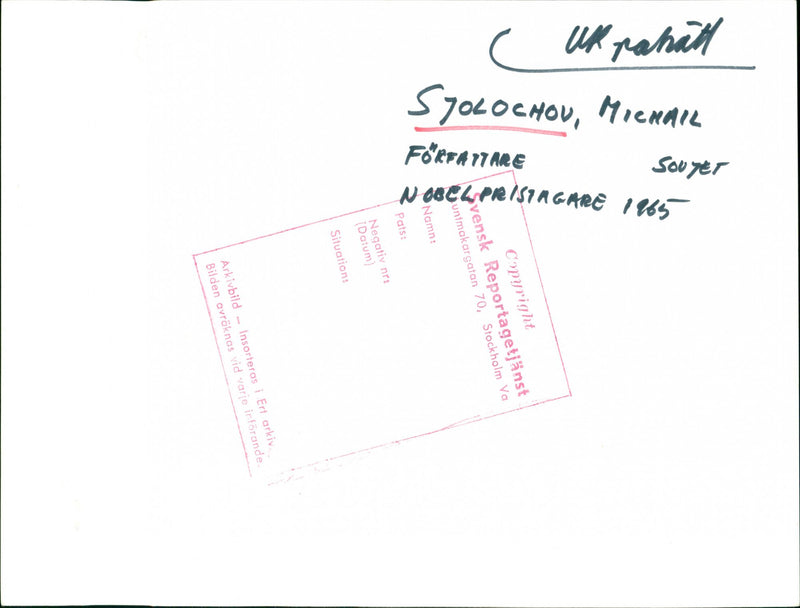 SJOLOCHOV, MICHAIL
FÖRFATTARE SOVJET
NOBELPRISTAGARE 1965
Copyright
Svensk Reportagetjänst
Luntmakargatan 70, Stockholm Va
Namn:
Pats:
Negativ nr:
(Datum)
Situation:
Arkivbild — Insorteras i Ert arkiv.
Bilden avräknas vid varje införande.